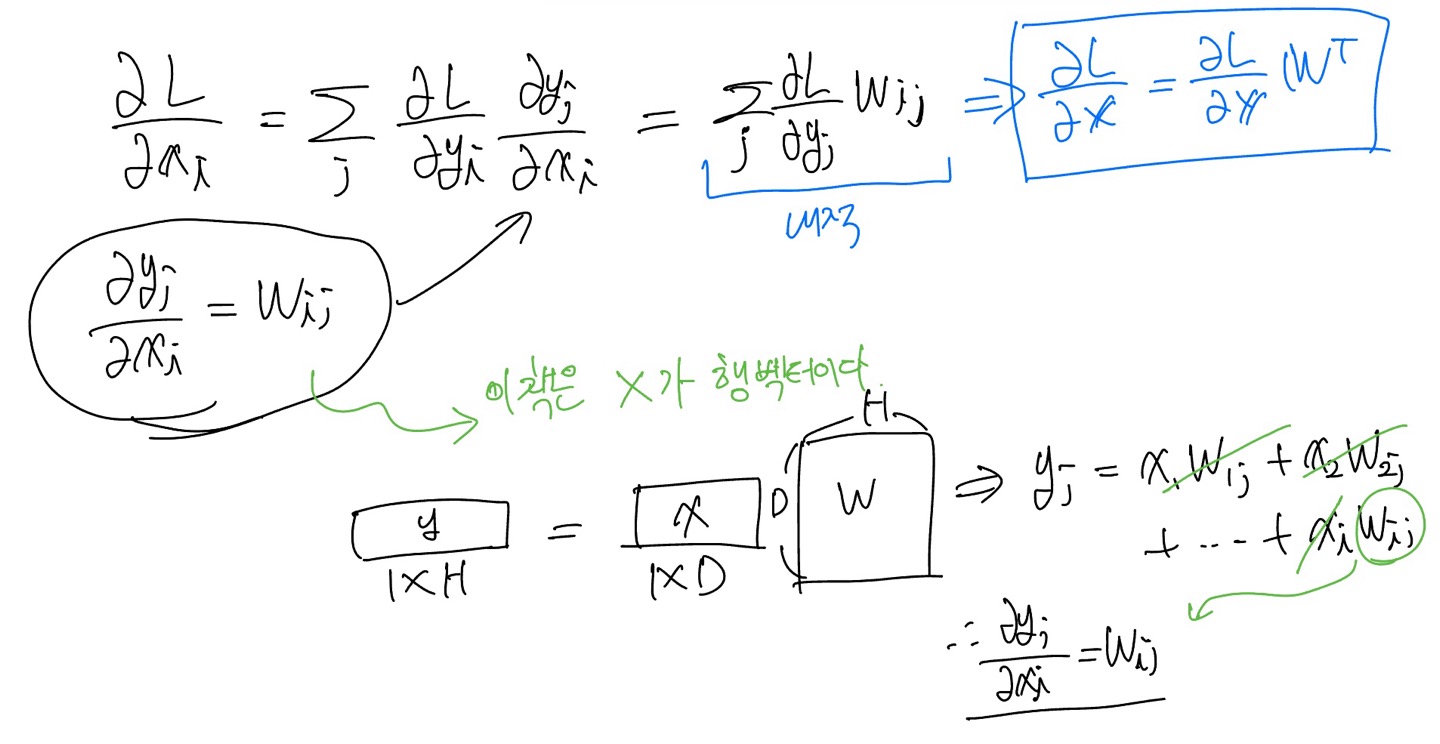 ∂L/∂xᵢ = Σⱼ ∂L/∂yᵢ ∂yⱼ/∂xᵢ = Σⱼ ∂L/∂yⱼ Wᵢⱼ ⇒ ∂L/∂x = ∂L/∂y Wᵀ
내적
∂yⱼ/∂xᵢ = Wᵢⱼ
이책은 X가 행벡터이다.
H
y = x D W ⇒ yⱼ = x₁W₁ⱼ + x₂W₂ⱼ
1×H 1×D + ⋯ + xᵢWᵢⱼ
∴ ∂yⱼ/∂xᵢ = Wᵢⱼ